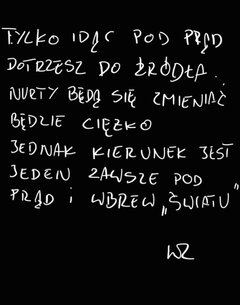 TYLKO IDĄC POD PRĄD
DOTRZESZ DO ŹRÓDŁA.
NURTY BĘDĄ SIĘ ZMIENIAĆ
BĘDZIE CIĘŻKO
JEDNAK KIERUNEK JEST
JEDEN ZAWSZE POD
PRĄD i WBREW „ŚWIATU"
WZ